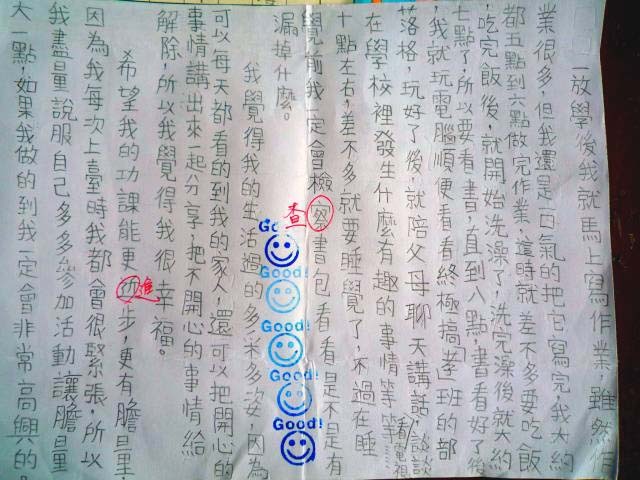 一放學後我就馬上寫作業,雖然作
業很多,但我還是一口氣的把它寫完,我大約
都五點到六點做完作業,這時就差不多要吃飯
,吃完飯後,就開始洗澡了,洗完澡後就大約
七點了,所以要看書,直到八點,書看好了後
,我就玩電腦順便看看終極搞(孝)班的部
落格,玩好了後,就陪父母聊天講話、談談
看電視
在學校裡發生什麼有趣的事情等等……
十點左右,差不多就要睡覺了,不過在睡
覺前我一定會檢察書包看看是不是有
查
漏掉什麼。
Good!
Good!
Good!
Good!
Good!
我覺得我的生活過的多采多姿,因為
可以每天都看的到我的家人,還可以把開心的
事情講出來一起分享,把不開心的事情給
解除,所以我覺得我很幸福。
希望我的功課能更近步,更有膽量,
進
因為我每次上臺時我都會很緊張,所以
我盡量說服自己多多參加活動讓膽量
大一點,如果我做的到我一定會非常高興的